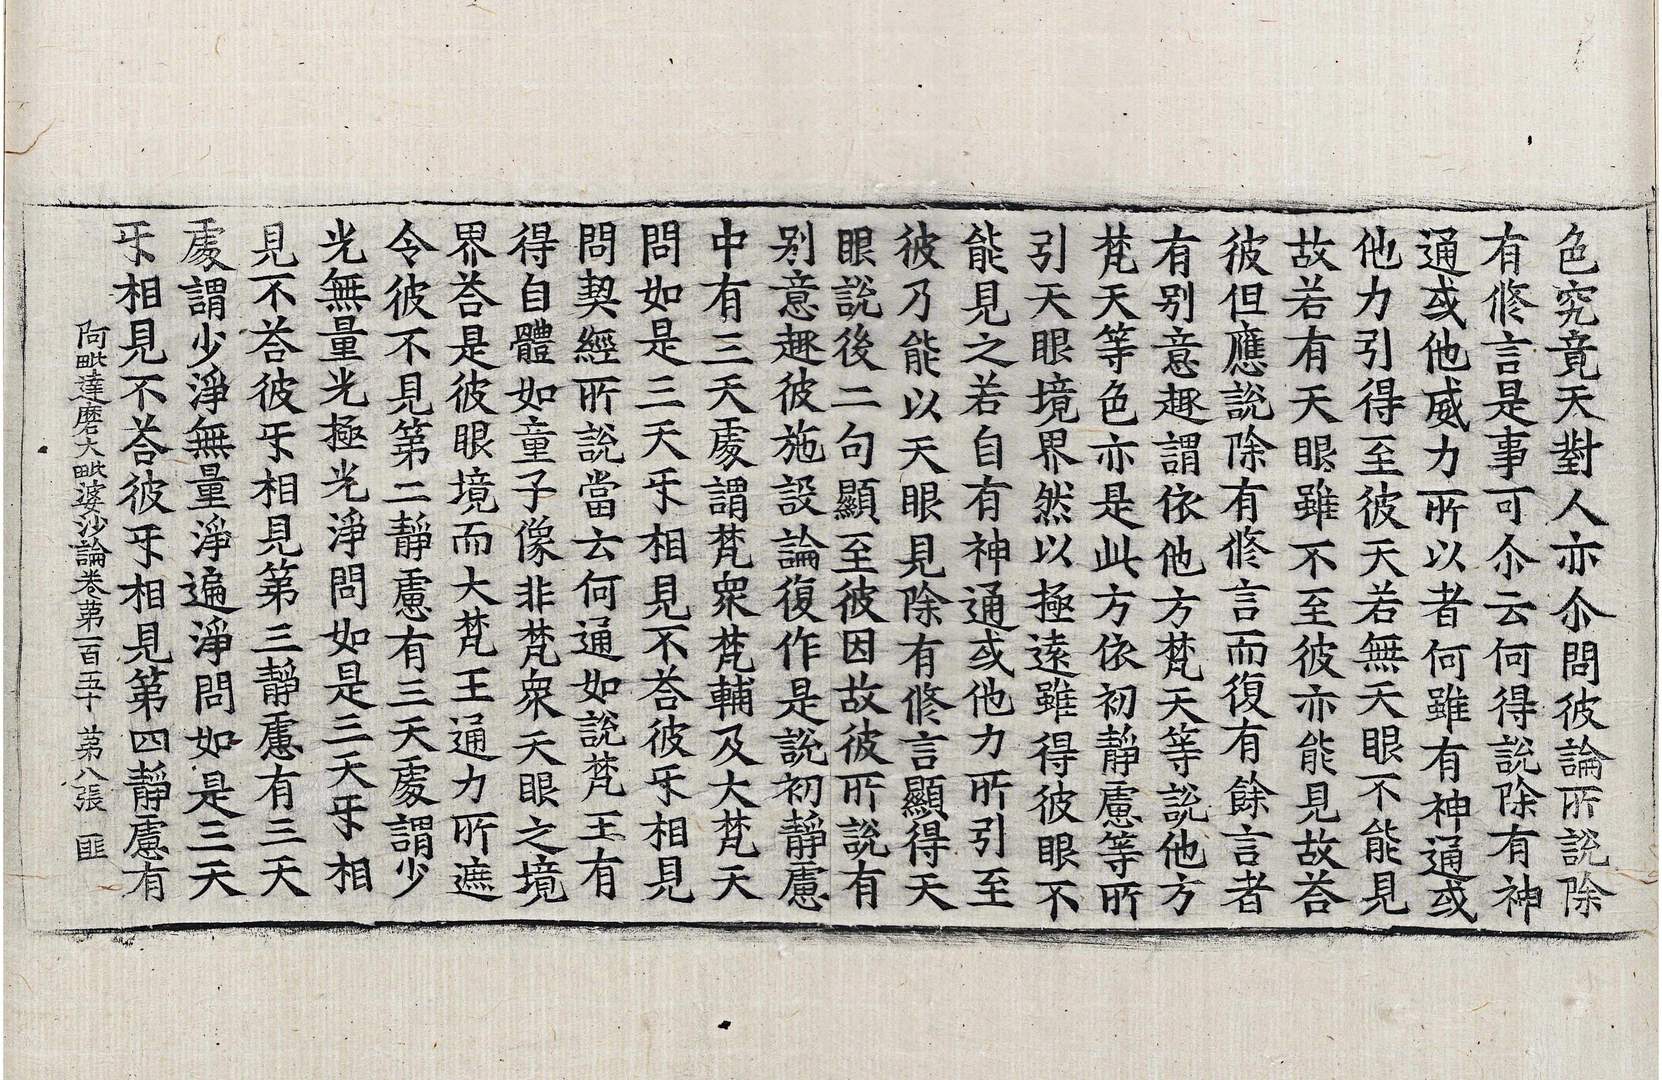 色究竟天對人亦尒問彼論所說除
有修言是事可尒云何得說除有神
通或他威力所以者何雖有神通或
他力引得至彼天若無天眼不能見
故若有天眼雖不至彼亦能見故荅
彼但應說除有修言而復有餘言者
有别意趣謂依他方梵天等說他方
梵天等色亦是此方依初靜慮等所
引天眼境界然以極遠雖得彼眼不
能見之若自有神通或他力所引至
彼乃能以天眼見除有修言顯得天
眼說後二句顯至彼因故彼所說有
别意趣彼施設論復作是說初靜慮
中有三天處謂梵衆梵輔及大梵天
問如是三天㸦相見不荅彼㸦相見
問契經所說當云何通如說梵王有
得自體如童子像非梵衆天眼之境
界荅是彼眼境而大梵王通力所遮
令彼不見第二靜慮有三天處謂少
光無量光極光淨問如是三天㸦相
見不荅彼㸦相見第三靜慮有三天
處謂少淨無量淨遍淨問如是三天
㸦相見不荅彼㸦相見第四靜慮有
阿毗達磨大毗婆沙論卷第一百五十 第八張 匪